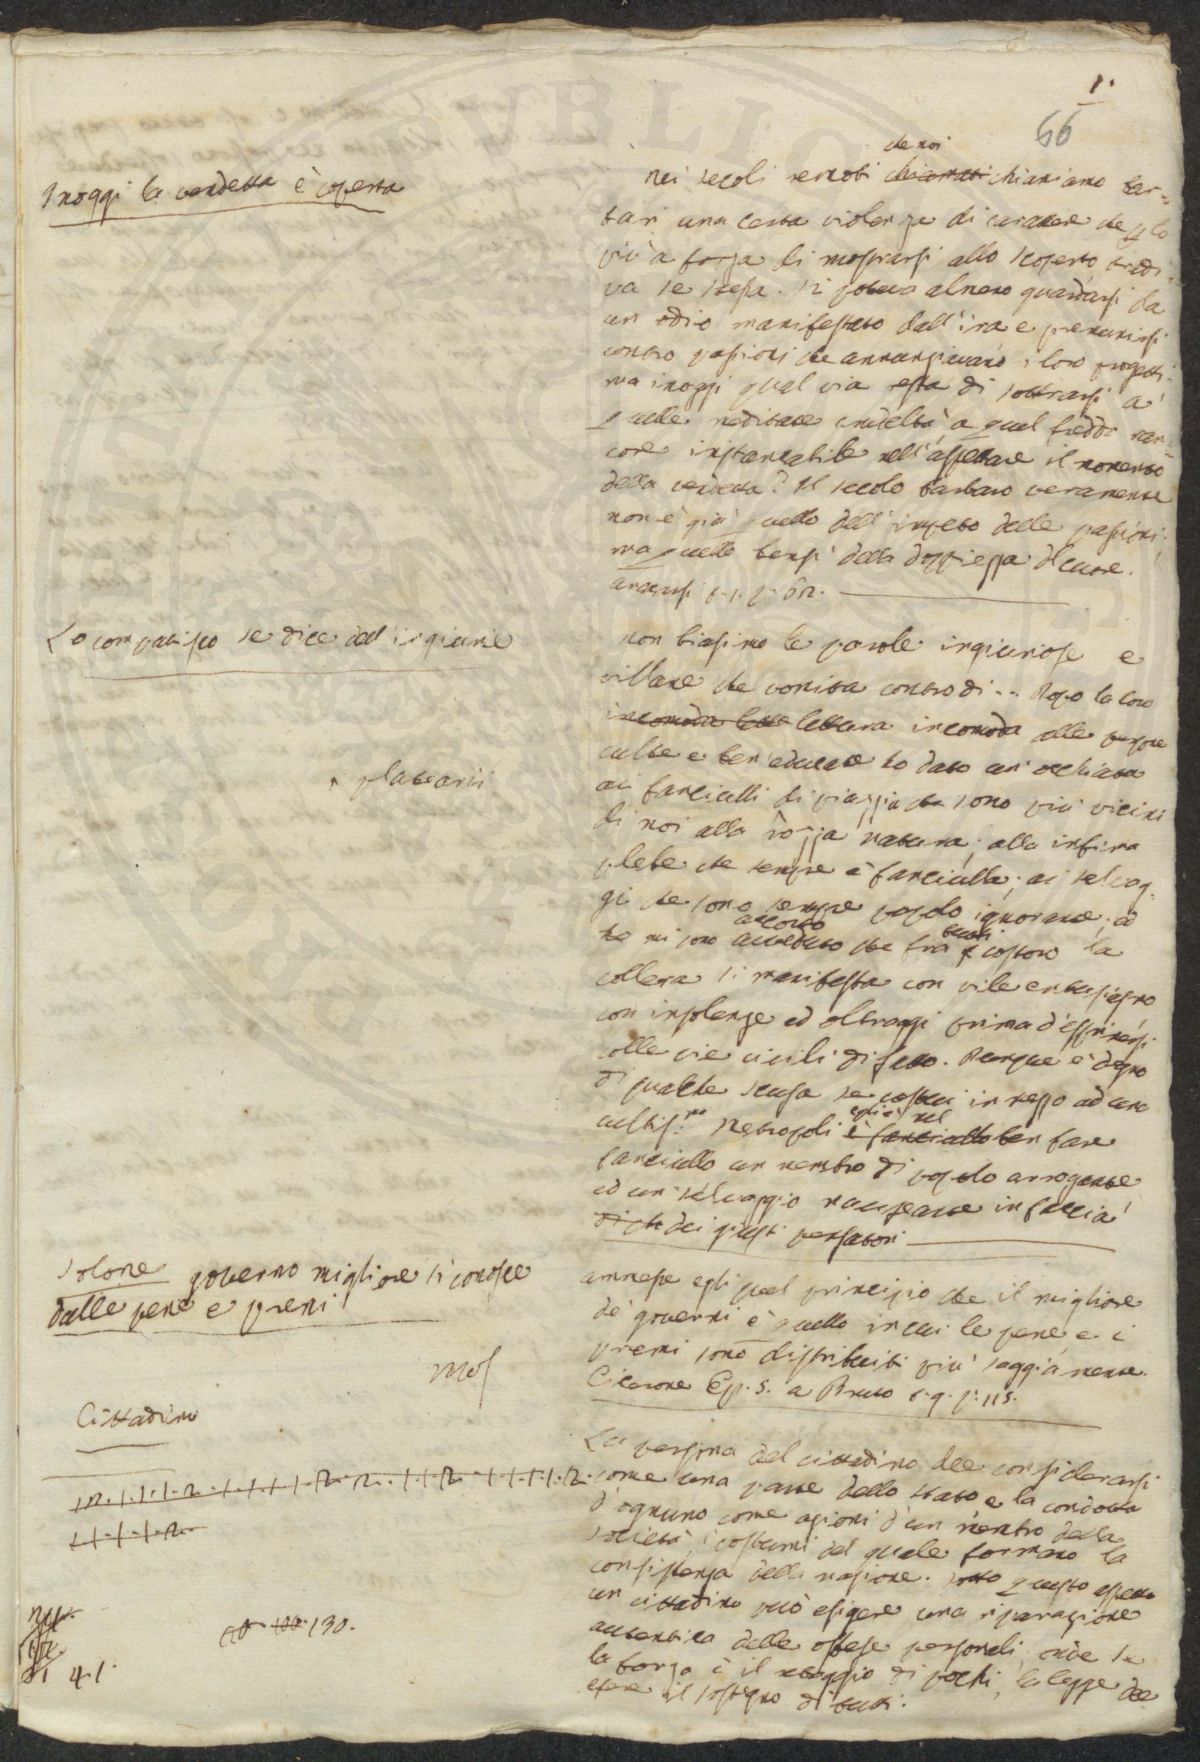 1.
66
Inoggi la vendetta è coperta
che noi
Nei secoli remoti chiamati chiamiamo bar-
bari una certa violenza di carattere che p lo
più a forza di mostrarsi allo scoperto tradi-
va se stessa. Si poteva almeno guardarsi da
un odio manifestato dall'ira e premunirsi
contro passioni che annunziavano i loro progetti.
ma inoggi qual via resta di sottrarsi a
quelle meditate crudeltà a quel freddo ran-
core instancabile nell'aspettare il momento
della vendetta? Il secolo barbaro veramente
non è già quello dell'impeto delle passioni;
ma quello bensì della doppiezza del cuore.
t. 1. p. 62.
Lo compatisco se dice del ingiurie
non biasimo le parole ingiuriose e
villane che vomita contro di... Dopo la loro
incomoda lettura incomoda alle persone
culte e ben educate ho dato un'occhiata
plateari
ai fanciulli di piazza che sono più vicini
di noi alla rozza natura; alla infima
plebe che sempre è fanciulla; ai selvag-
gi che sono sempre popolo ignorante; ed
accorto tutti
ne mi sono avveduto che fra costoro la
collera si manifesta con vile entusiasmo
con insolenze ed oltraggi prima d'esprimersi
colle vie civili di fatto. Dunque è degno
di qualche scusa se costui in mezzo ad una
cultiss.ma Metropoli è fanciullo ben fare
nel
fanciullo un membro di popolo arrogante
ed un selvaggio in faccia
dei giusti pensatori
Solone governo migliore si conosce
dalle pene e premi
ammesse egli quel principio che il migliore
de' governi è quello in cui le pene e i
premi sono distribuiti più saggiamente.
Cicerone Ep. 5. a Bruto t. 9. p. 115.
Cittadino
La persona del cittadino dee considerarsi
come una parte dello stato e la condotta
d'ognuno come azioni d'un membro della
società, i costumi del quale formano la
consistenza della nazione. sotto questo aspetto
un cittadino può esigere una riparazione
autentica delle offese personali, onde se
la forza è il retaggio di pochi, la legge dee
essere il sostegno di tutti.
130.
41.